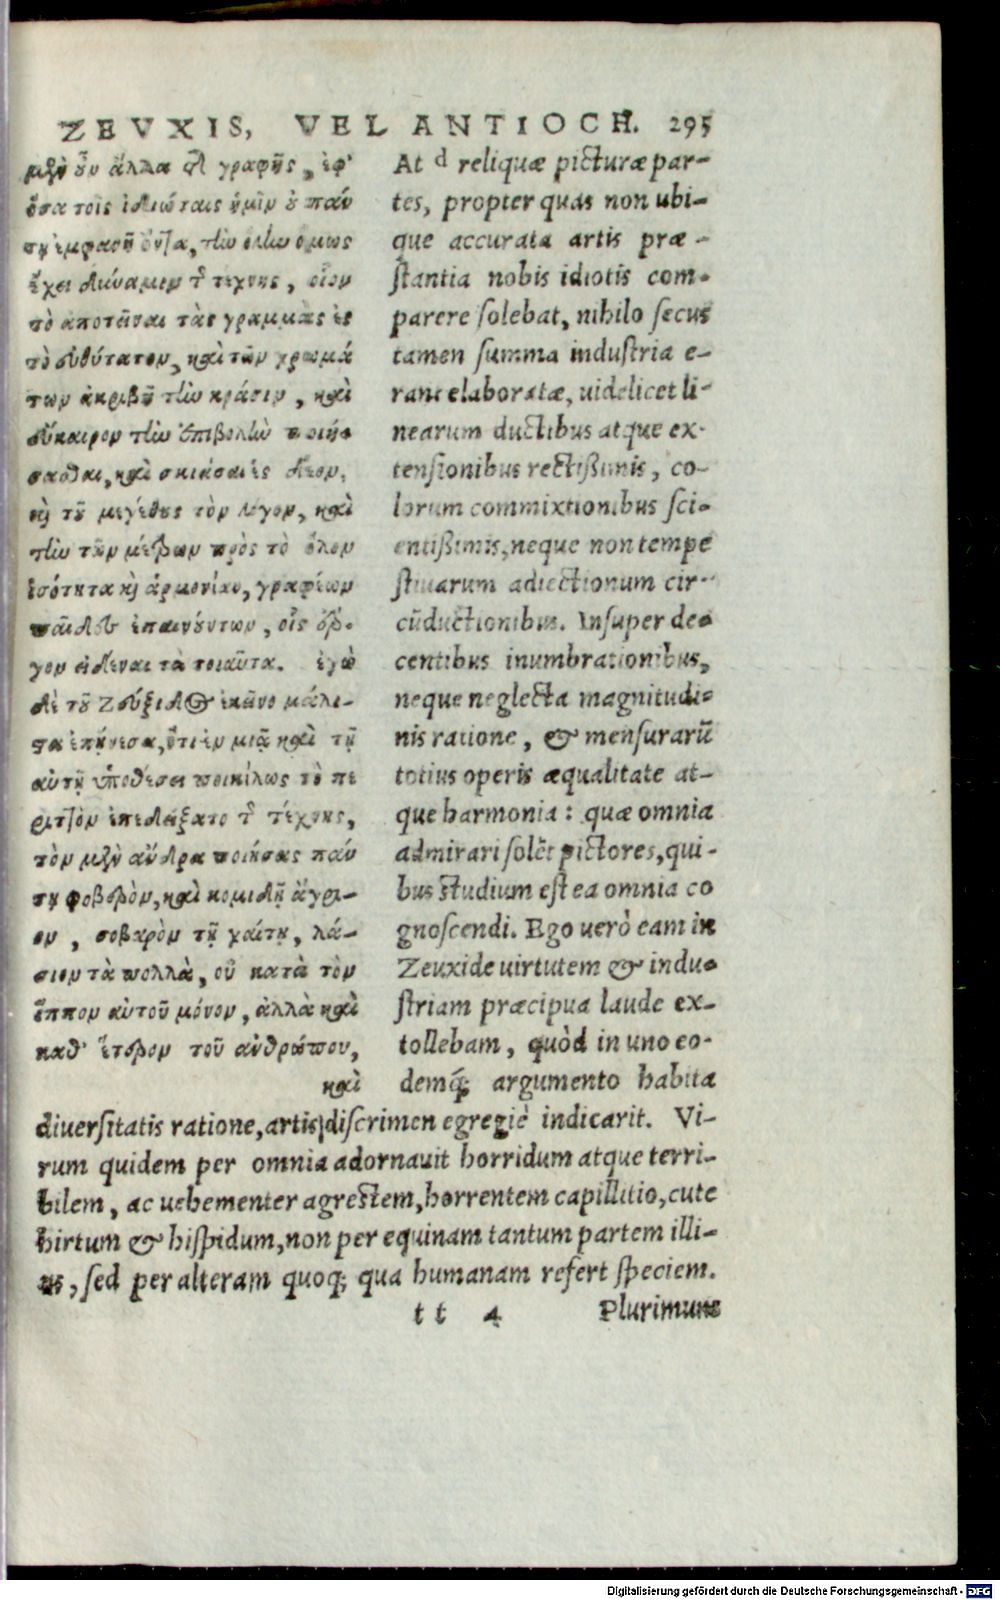 ZEVXIS, VEL ANTIOCH. 295
μὲν οὖν ἄλλα τῆς γραφῆς, ἐφ'
ὅσα τοῖς ἰδιώταις ἡμῖν οὐ πάν
τῃ ἐμφανῆ ὄντα, τὴν ὅλην ὅμως
ἔχει δύναμιν τῆς τέχνης, οἷον
τὸ ἀποτεῖναι τὰς γραμμὰς ἐς
τὸ εὐθύτατον, καὶ τῶν χρωμά
των ἀκριβῆ τὴν κρᾶσιν, καὶ
εὔκαιρον τὴν ἐπιβολὴν ποιή-
σασθαι, καὶ σκιάσαι ἐς δέον,
καὶ τοῦ μεγέθους τὸν λόγον, καὶ
τὴν τῶν μέτρων πρὸς τὸ ὅλον
ἰσότητα καὶ ἁρμονίαν, γραφέων
παῖδες ἐπαινούντων, οἷς ἔρ-
γον εἰδέναι τὰ τοιαῦτα. ἐγὼ
δὲ τοῦ Ζεύξιδος ἐκεῖνο μάλι-
στα ἐπῄνεσα, ὅτι ἐν μιᾷ καὶ τῇ
αὐτῇ ὑποθέσει ποικίλως τὸ πε
ριττὸν ἐπεδείξατο τῆς τέχνης,
τὸν μὲν ἄνδρα ποιήσας πάν
τῃ φοβερὸν, καὶ κομιδῇ ἄγρι-
ον, σοβαρὸν τῇ χαίτῃ, λά-
σιον τὰ πολλὰ, οὐ κατὰ τὸν
ἵππον αὐτοῦ μόνον, ἀλλὰ καὶ
καθ' ἕτερον τοῦ ἀνθρώπου,
καὶ
At d reliquæ picturæ par-
tes, propter quas non ubi-
que accurata artis præ-
stantia nobis idiotis com-
parere solebat, nihilo secus
tamen summa industria e-
rant elaboratæ, uidelicet li-
nearum ductibus atque ex-
tensionibus rectißimis, co-
lorum commixtionibus sci-
entißimis, neque non tempe
stiuarum adiectionum cir-
cūductionibus. Insuper de-
centibus inumbrationibus,
neque neglecta magnitudi-
nis ratione, & mensurarū
totius operis æqualitate at-
que harmonia: quæ omnia
admirari solēt pictores, qui-
bus studium est ea omnia co
gnoscendi. Ego uerò eam in
Zeuxide uirtutem & indu-
striam præcipua laude ex-
tollebam, quòd in uno eo-
demq́; argumento habita
diuersitatis ratione, artis discrimen egregiè indicarit. Vi-
rum quidem per omnia adornauit horridum atque terri-
bilem, ac uehementer agrestem, horrentem capillitio, cute
hirtum & hispidum, non per equinam tantum partem illi-
us, sed per alteram quoq; qua humanam refert speciem.
tt 4 Plurimum
Digitalisierung gefördert durch die Deutsche Forschungsgemeinschaft - DFG